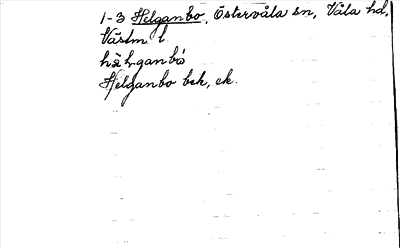 1-3 Helganbo, Östervåla sn, Våla hd,
Västm l
Helganbo bek, ek.